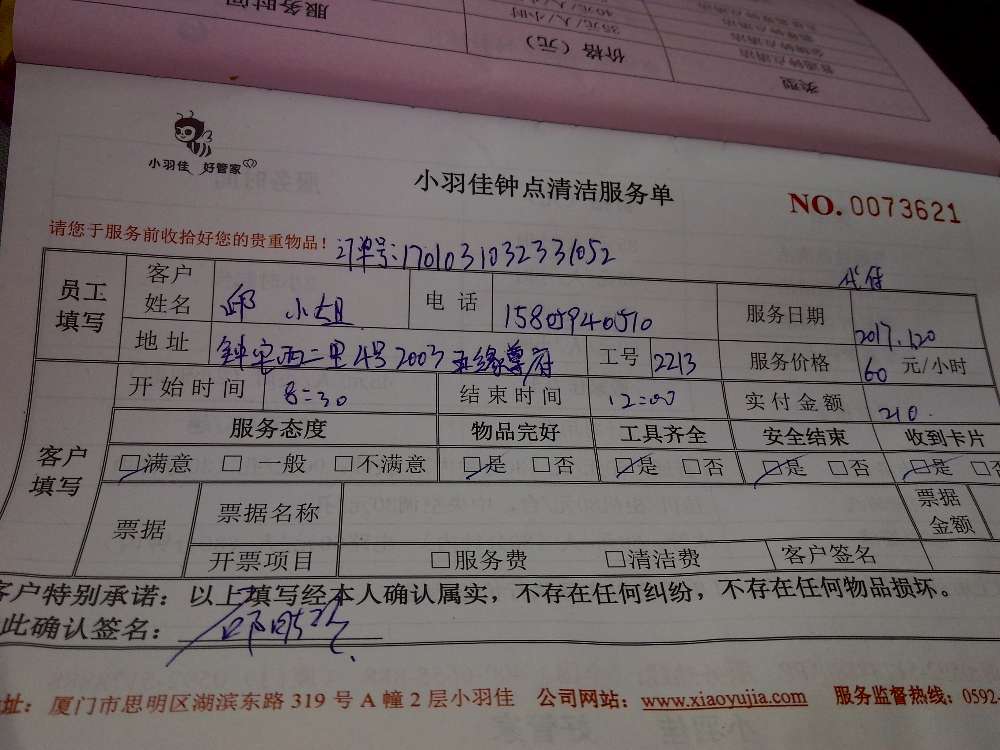 服务时间
价格（元）
类型
35元/人/小时
40元/人/小时
普通钟点清洁
小羽佳 好管家
小羽佳钟点清洁服务单
NO. 0073621
请您于服务前收拾好您的贵重物品！ 订单号:1701031032331052
员工填写 客户姓名 邱小姐 电话 15805940510 服务日期 2017.1.20
地址 钟宅西二里4号2003 工号 2213 服务价格 60 元/小时
客户填写 开始时间 8:30 结束时间 12:00 实付金额 210.
服务态度 物品完好 工具齐全 安全结束 收到卡片
□满意 □一般 □不满意 □是 □否 □是 □否 □是 □否 □是 □否
票据 票据名称 票据金额
开票项目 □服务费 □清洁费 客户签名
客户特别承诺：以上填写经本人确认属实，不存在任何纠纷，不存在任何物品损坏。
此确认签名：
址：厦门市思明区湖滨东路 319 号 A 幢 2 层小羽佳 公司网站：www.xiaoyujia.com 服务监督热线：0592-